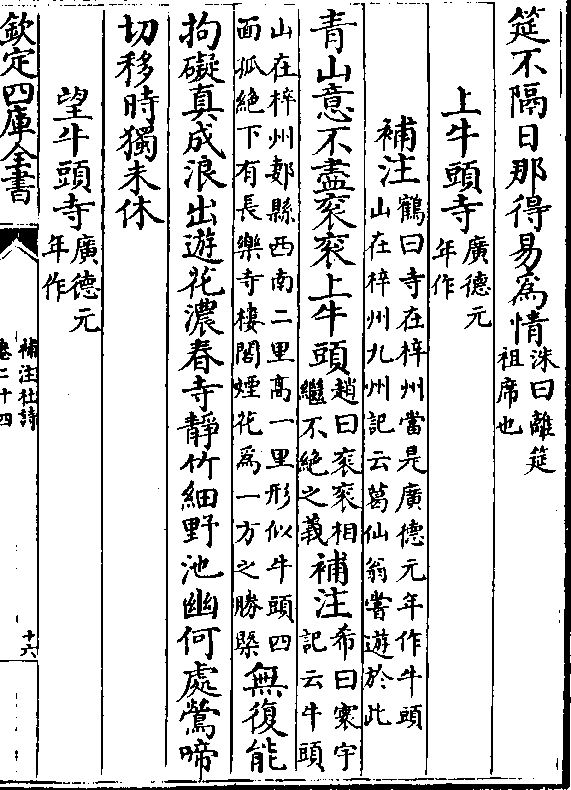 筵不隔日那得易為情洙曰離筵
祖席也
上牛頭寺廣德元
年作
補注鶴曰寺在梓州當是廣德元年作牛頭
山在梓州九州記云葛仙翁嘗遊於此
青山意不盡衮衮上牛頭趙曰衮衮相
繼不絶之義補注希曰寰宇
記云牛頭
山在梓州郪縣西南二里髙一里形似牛頭四
面孤絶下有長樂寺樓閣煙花為一方之勝槩無復能
拘礙真成浪出遊花濃春寺靜竹細野池幽何處鶯啼
切移時獨未休
望牛頭寺廣德元
年作
欽定四庫全書
補注杜詩
卷二十四
十六